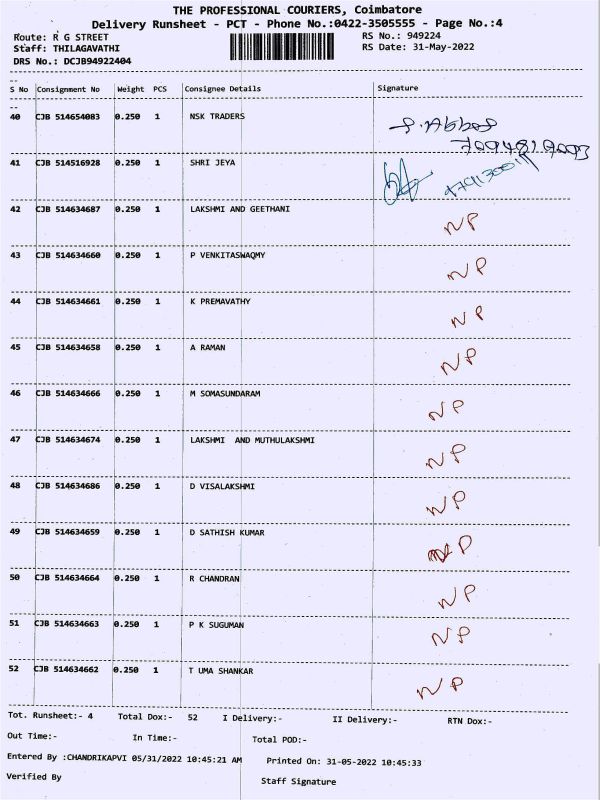 THE PROFESSIONAL COURIERS, Coimbatore
Delivery Runsheet - PCT - Phone No.:0422-3505555 - Page No.:4
Route: R G STREET RS No.: 949224
Staff: THILAGAVATHI RS Date: 31-May-2022
DRS No.: DCJB94922404
S No Consignment No Weight PCS Consignee Details Signature
40 CJB 514654083 0.250 1 NSK TRADERS
41 CJB 514516928 0.250 1 SHRI JEYA
42 CJB 514634687 0.250 1 LAKSHMI AND GEETHANI NP
43 CJB 514634660 0.250 1 P VENKITASWAQMY NP
44 CJB 514634661 0.250 1 K PREMAVATHY NP
45 CJB 514634658 0.250 1 A RAMAN NP
46 CJB 514634666 0.250 1 M SOMASUNDARAM NP
47 CJB 514634674 0.250 1 LAKSHMI AND MUTHULAKSHMI NP
48 CJB 514634686 0.250 1 D VISALAKSHMI NP
49 CJB 514634659 0.250 1 D SATHISH KUMAR NP
50 CJB 514634664 0.250 1 R CHANDRAN NP
51 CJB 514634663 0.250 1 P K SUGUMAN NP
52 CJB 514634662 0.250 1 T UMA SHANKAR NP
Tot. Runsheet:- 4 Total Dox:- 52 I Delivery:- II Delivery:- RTN Dox:-
Out Time:- In Time:- Total POD:-
Entered By :CHANDRIKAPVI 05/31/2022 10:45:21 AM Printed On: 31-05-2022 10:45:33
Verified By Staff Signature